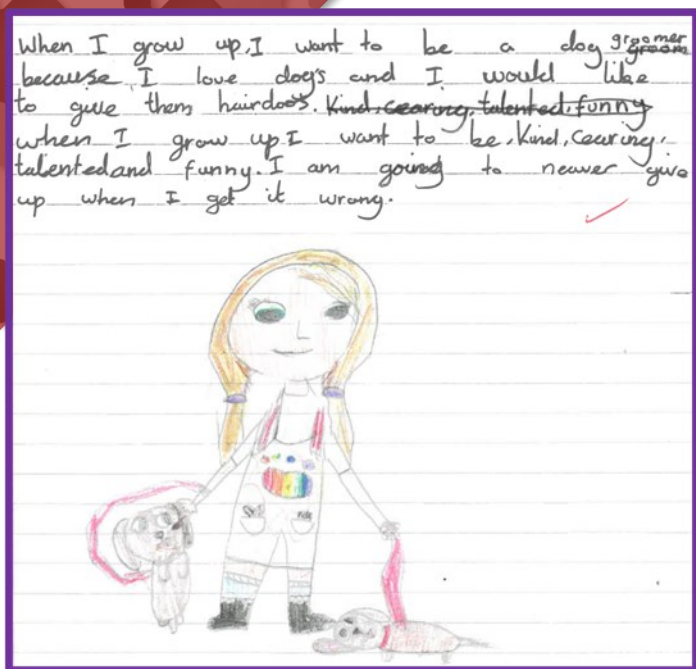 When I grow up, I want to be a dog groomer groom
because I love dog's and I would like
to give them hairdoos. Kind, cearing, talented, funny
when I grow up I want to be, Kind, cearing,
talented and funny. I am going to neaver give
up when I get it wrong.